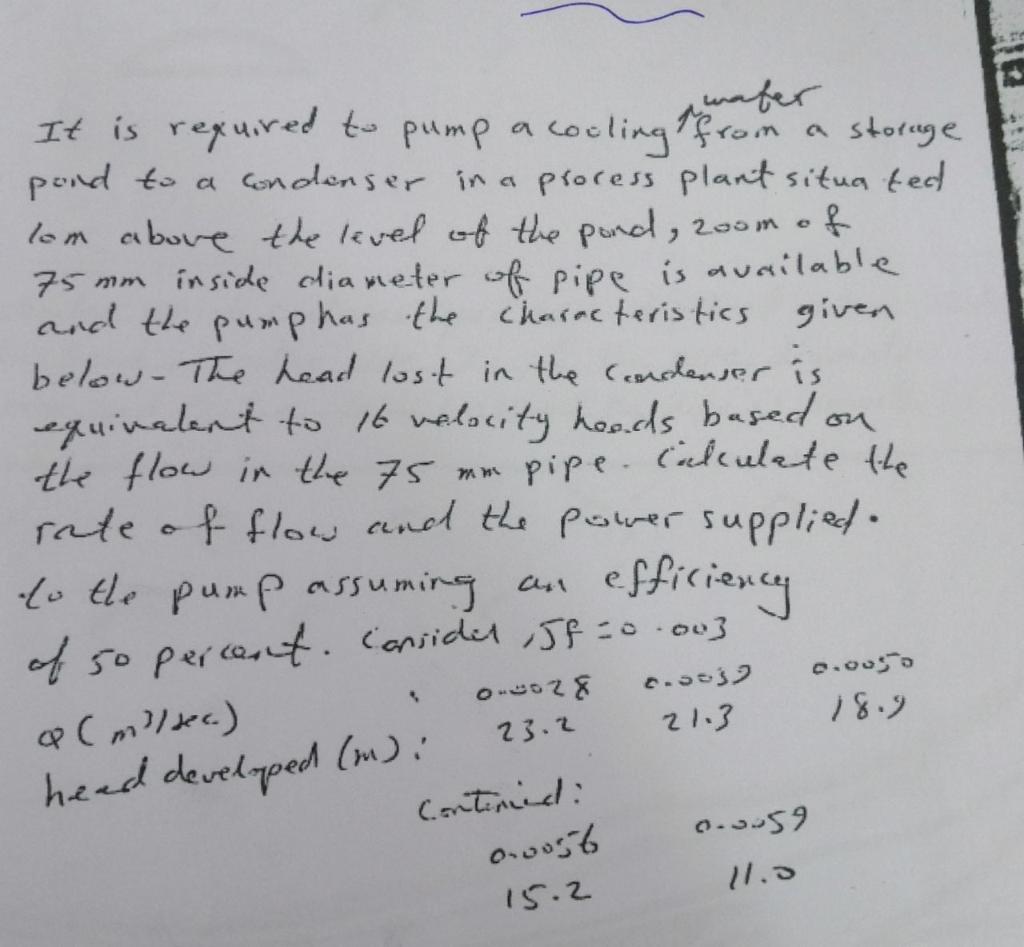 water
It is required to pump a cooling from a storage
pond to a condenser in a process plant situated
10m above the level of the pond, 200m of
75 mm inside diameter of pipe is available
and the pump has the characteristics given
below- The head lost in the condenser is
equivalent to 16 velocity heads based on
the flow in the 75 mm pipe. Calculate the
rate of flow and the power supplied.
to the pump assuming an efficiency
of 50 percent. Consider, Jf = 0.003
Q (m³/sec.) : 0.0028 0.0039 0.0050
head developed (m): 23.2 21.3 18.9
Continued:
0.0056 0.0059
15.2 11.0